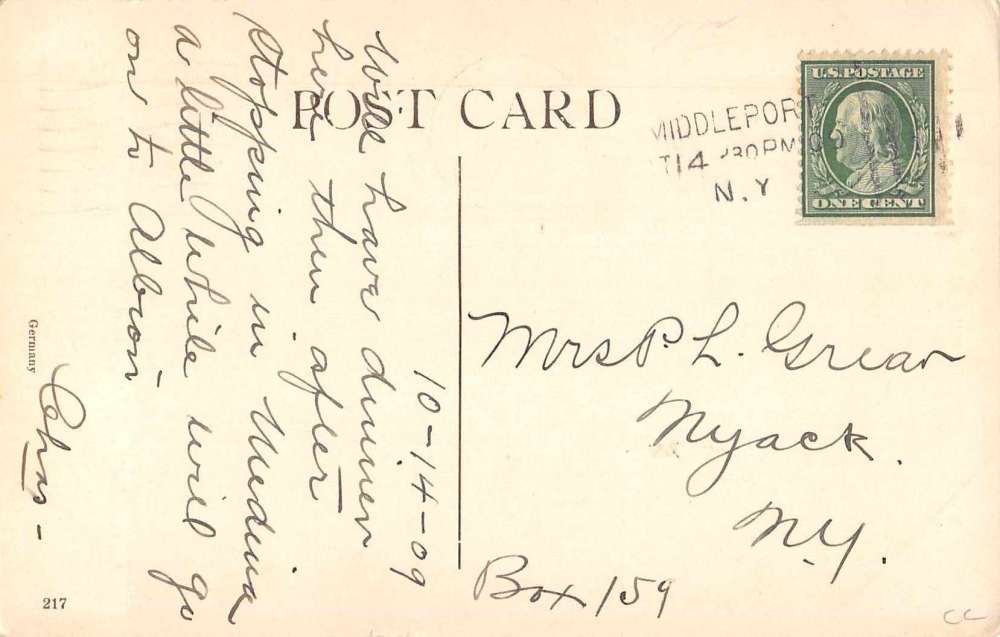 POST CARD
U.S. POSTAGE
ONE CENT
MIDDLEPORT
T14 30 PM
N.Y
10-14-09
Will have dinner
here then after
stopping in Medina
a little while will go
on to Albion
Chas-
Mrs P. L. Grear
Nyack.
N.Y.
Box 159
Germany
217
CC